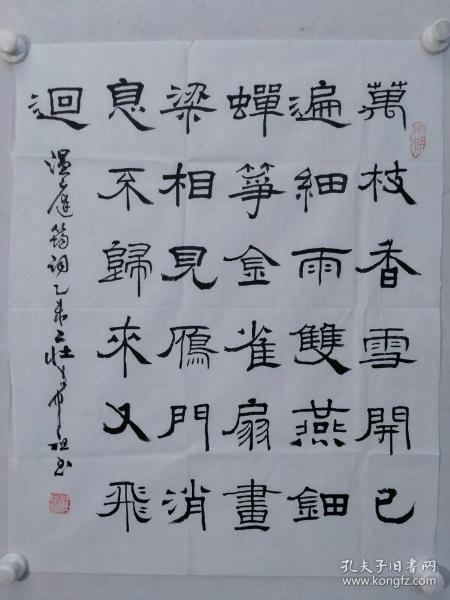 萬枝香雪開已
遍細雨雙燕鈿
蟬箏金雀扇畫
梁相見鴈門消
息不歸來又飛
迴
温庭筠詞乙未
孔夫子旧书网
www.kongfz.com